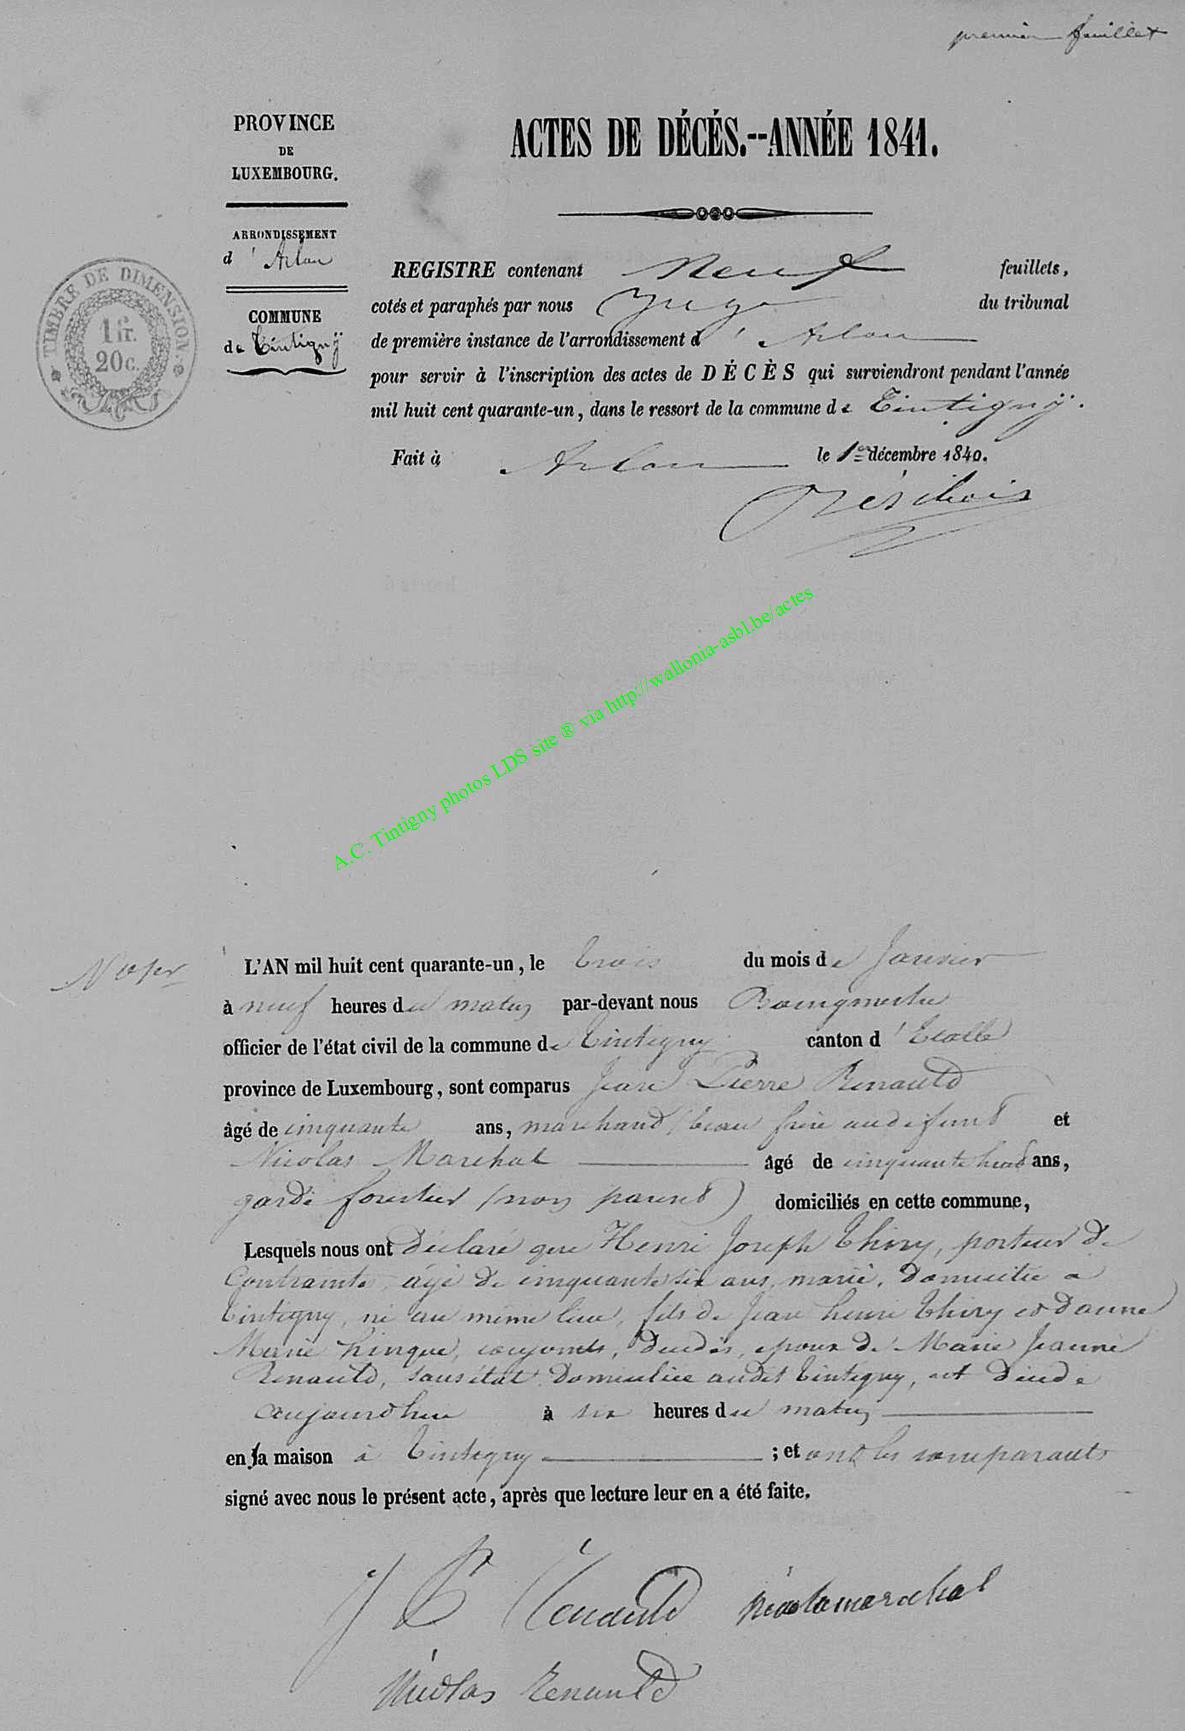 premier feuillet
PROVINCE
DE
LUXEMBOURG.
ARRONDISSEMENT
d'Arlon
COMMUNE
de Tintigny
TIMBRE DE DIMENSION
1 fr.
20 c.
ACTES DE DÉCÉS.--ANNÉE 1841.
REGISTRE contenant Neuf feuillets,
cotés et paraphés par nous Juge du tribunal
de première instance de l'arrondissement d'Arlon
pour servir à l'inscription des actes de DÉCÈS qui surviendront pendant l'année
mil huit cent quarante-un, dans le ressort de la commune de Tintigny.
Fait à Arlon le 1er décembre 1840.
A.C. Tintigny photos LDS site ® via http://wallonia-asbl.be/actes
L'AN mil huit cent quarante-un, le trois du mois de Janvier
à neuf heures du matin par-devant nous Bourgmestre
officier de l'état civil de la commune de Tintigny canton d'Etalle
province de Luxembourg, sont comparus Jean Pierre Renauld
âgé de cinquante ans, marchand (beau frère au défunt et
Nicolas Marechal âgé de cinquante huit ans,
garde forestier (non parent) domiciliés en cette commune,
Lesquels nous ont déclaré que Henri Joseph Thiry, porteur de
Contrainte, âgé de cinquante six ans, marié, domicilié a
Tintigny, né au même lieu, fils de Jean henri Thiry et d'anne
Marie hinque, conjoints, décédés, époux de Marie Jeanne
Renauld, sans état domiciliée audit Tintigny, est décédé
aujourdhui à six heures du matin
en sa maison à Tintigny ; et ont les comparants
signé avec nous le présent acte, après que lecture leur en a été faite.
J P Renauld Nicola marechal
Nicolas Renauld